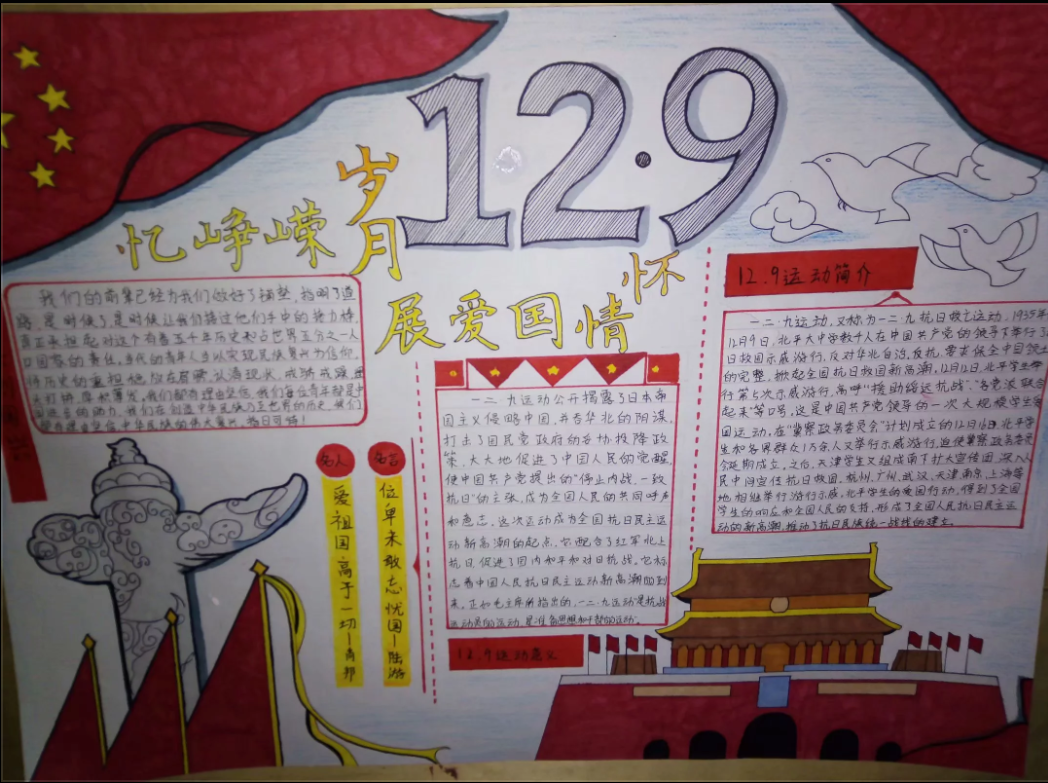 12·9
忆峥嵘岁月
展爱国情怀
我们的前辈已经为我们做好了铺垫,指明了道
路,是时候了,是时候让我们接过他们手中的接力棒,
真正承担起对这个有着五千年历史和占世界五分之一人
口国家的责任,当代的青年人当以实现民族复兴为信仰,
名人
名言
爱祖国高于一切—肖邦
位卑未敢忘忧国—陆游
一二·九运动公开揭露了日本帝
国主义侵略中国,并吞华北的阴谋,
打击了国民党政府的妥协投降政
策,大大地促进了中国人民的觉醒,
使中国共产党提出的“停止内战,一致
抗日”的主张,成为全国人民的共同呼声
和意志。这次运动成为全国抗日民主运
动新高潮的起点,它配合了红军北上
抗日,促进了国内和平和对日抗战。它标
志着中国人民抗日民主运动新高潮的到
来。正如毛主席所指出的,一二·九运动“是抗战
动员的运动,是准备思想和干部的运动”。
12.9运动意义
12.9运动简介
一二·九运动,又称为一二·九抗日救亡运动,1935年
12月9日,北平大中学数千人在中国共产党的领导下举行了
日救国示威游行,反对华北自治,反抗
的完整,掀起全国抗日救国新高潮,12月12日,北平学生举
行第五次示威游行,高呼“援助绥远抗战”,“各党派联合
起来”等口号,这是中国共产党领导的一次大规模学生爱
国运动,在“冀察政务委员会”计划成立的12月16日,北平学
生和各界群众1万余人又举行示威游行,迫使冀察政务委员
会延期成立。之后,天津学生又组成南下扩大宣传团,深入人
民中间宣传抗日救国,杭州,广州,武汉,天津,南京,上海等
地相继举行游行示威,北平学生的爱国行动,得到了全国
学生的响应和全国人民的支持,形成了全国人民抗日民主运
动的新高潮,推动了抗日民族统一战线的建立。